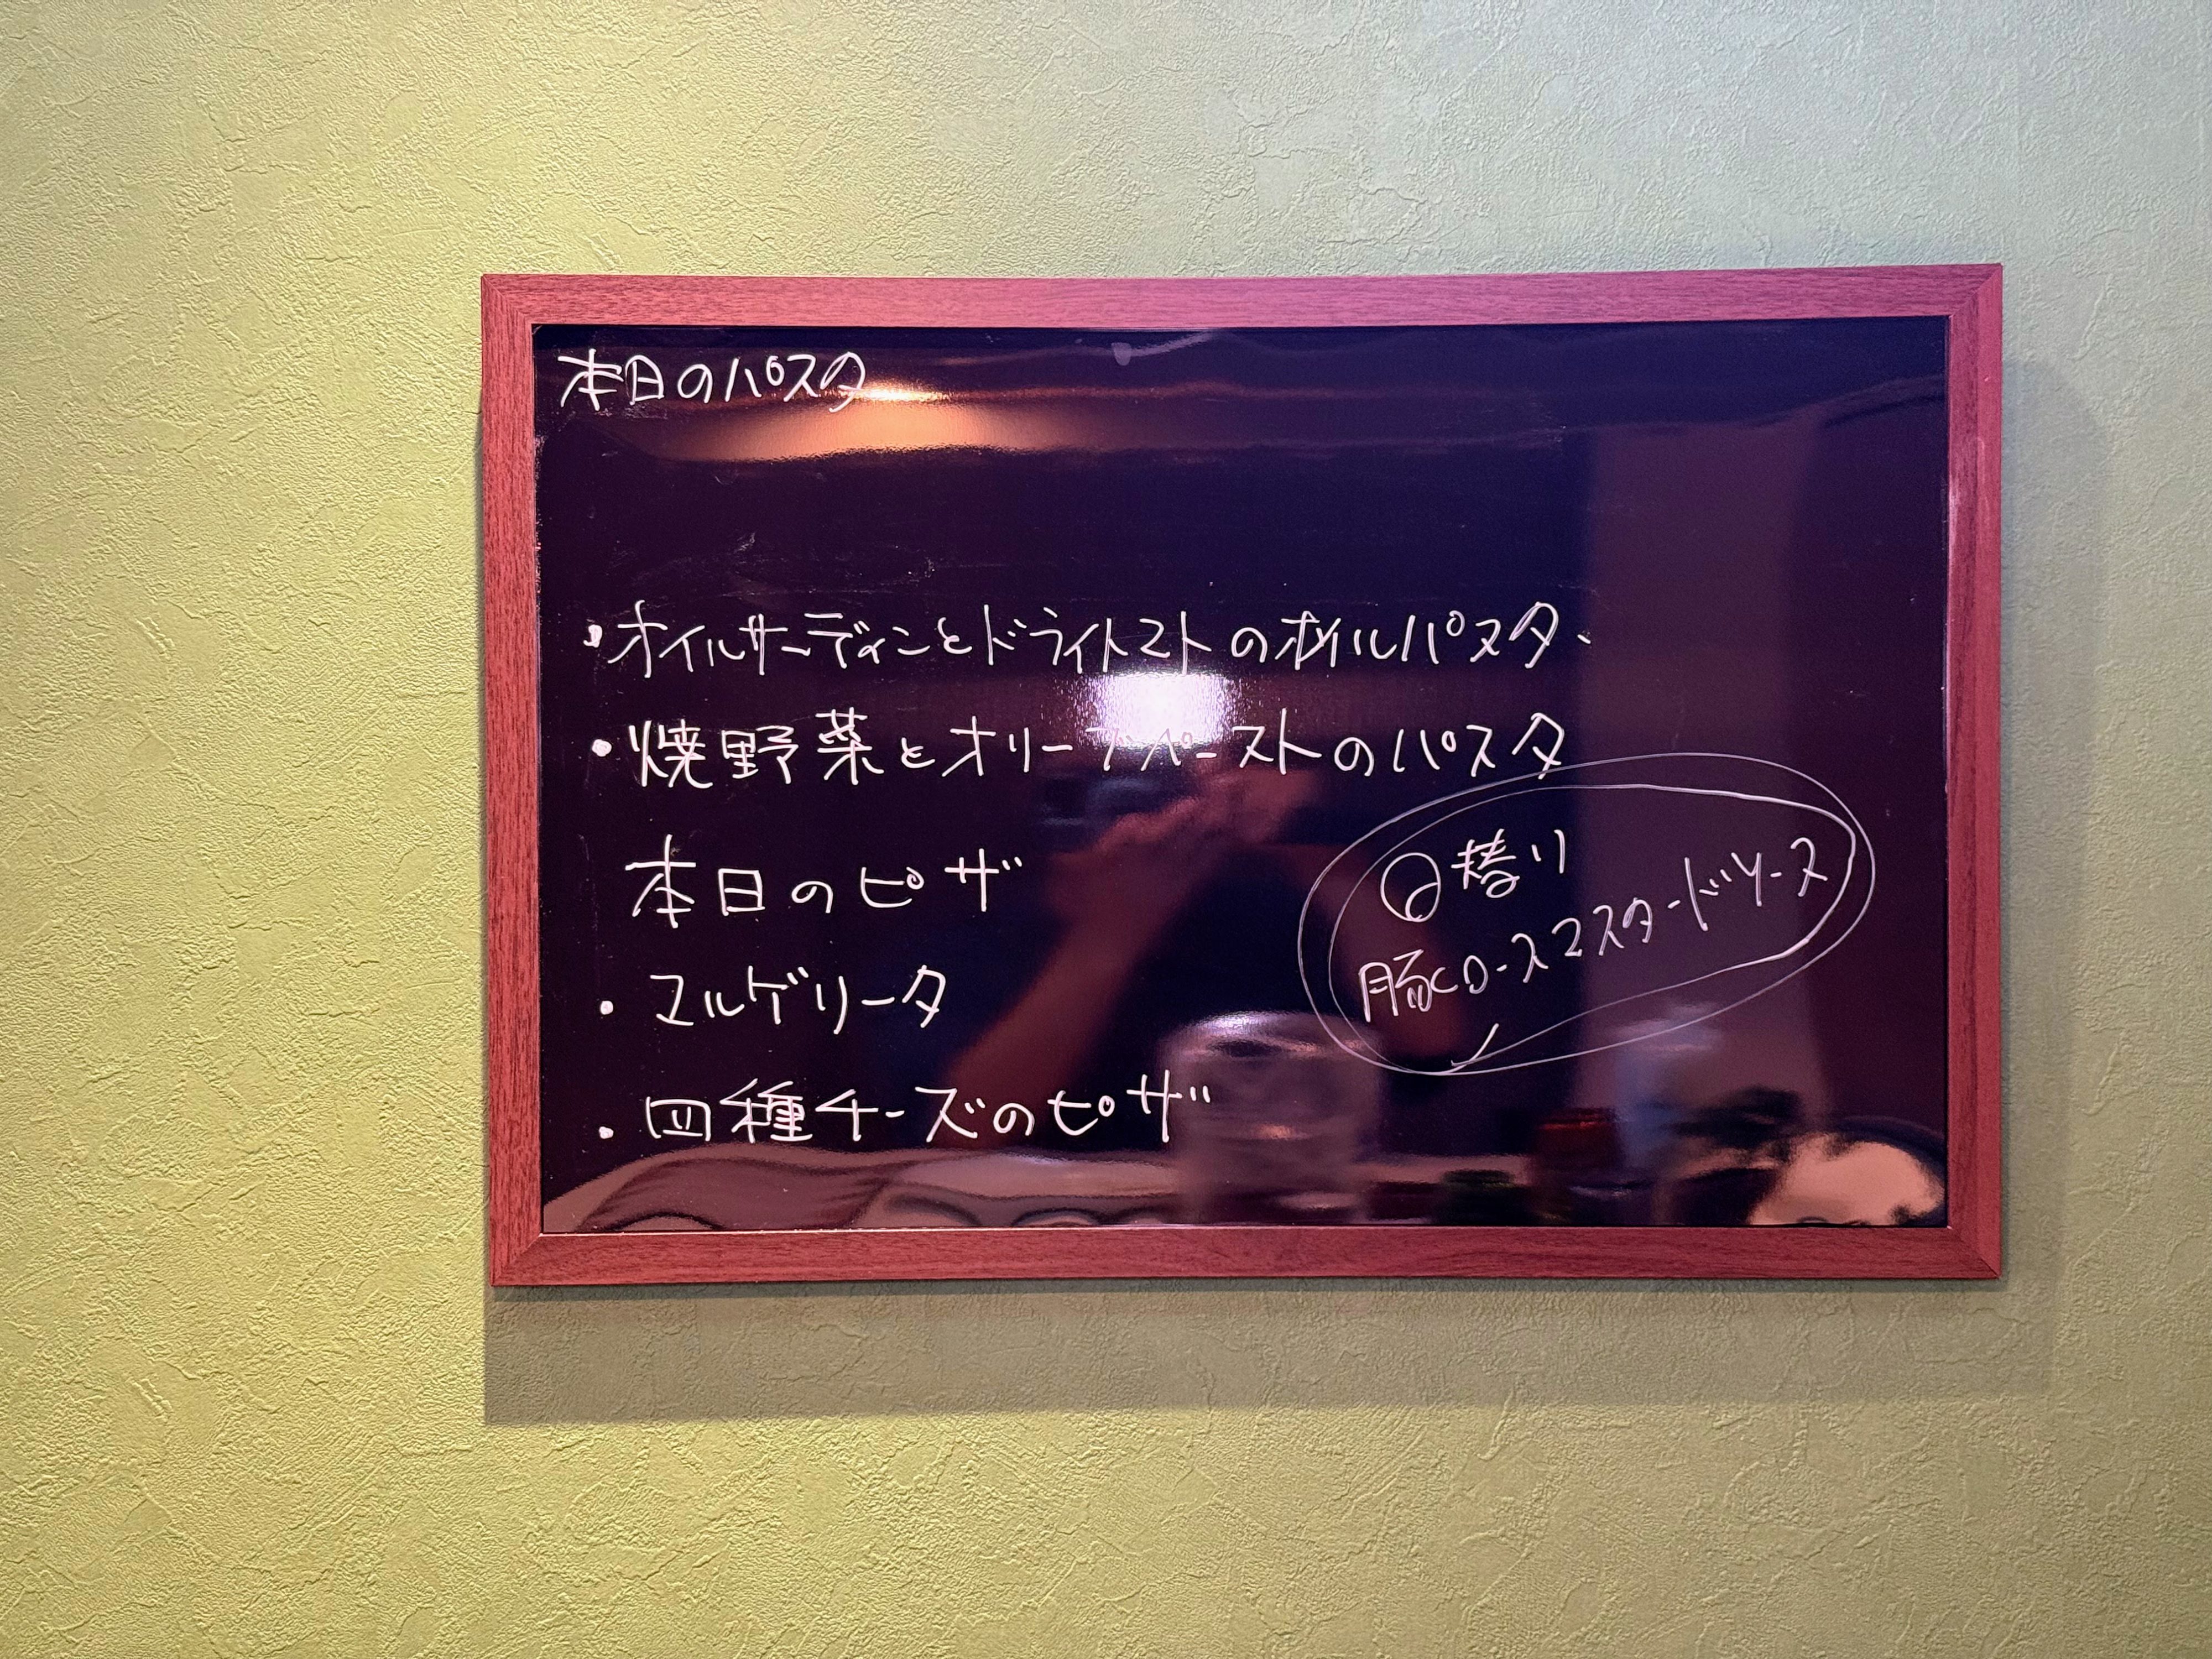 本日のパスタ
・オイルサーディンとドライトマトのオイルパスタ
・焼野菜とオリーブペーストのパスタ
本日のピザ
・マルゲリータ
・四種チーズのピザ
日替り
豚ロースマスタードソース